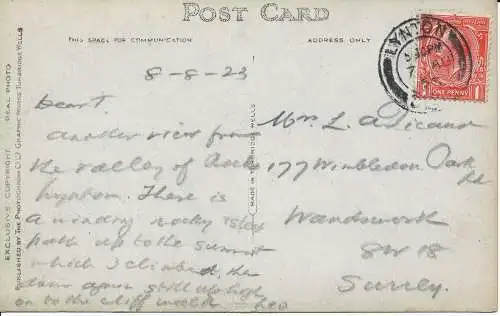 POST CARD
THIS SPACE FOR COMMUNICATION
ADDRESS ONLY
EXCLUSIVE COPYRIGHT REAL PHOTO
PUBLISHED BY THE PHOTOCHROM CO. LTD GRAPHIC WORKS TUNBRIDGE WELLS
MADE IN TUNBRIDGE WELLS
LYNTON
ONE PENNY
8-8-23
Dear T.
Another view from
the valley of Rocks
Lynton. There is
a winding rocky steep
path up to the summit
which I climbed, the
down again still up high
on to the cliff walk
Leo
Mrs. L.
177 Wimbledon Park
Rd
Wandsworth
SW 18
Surrey.